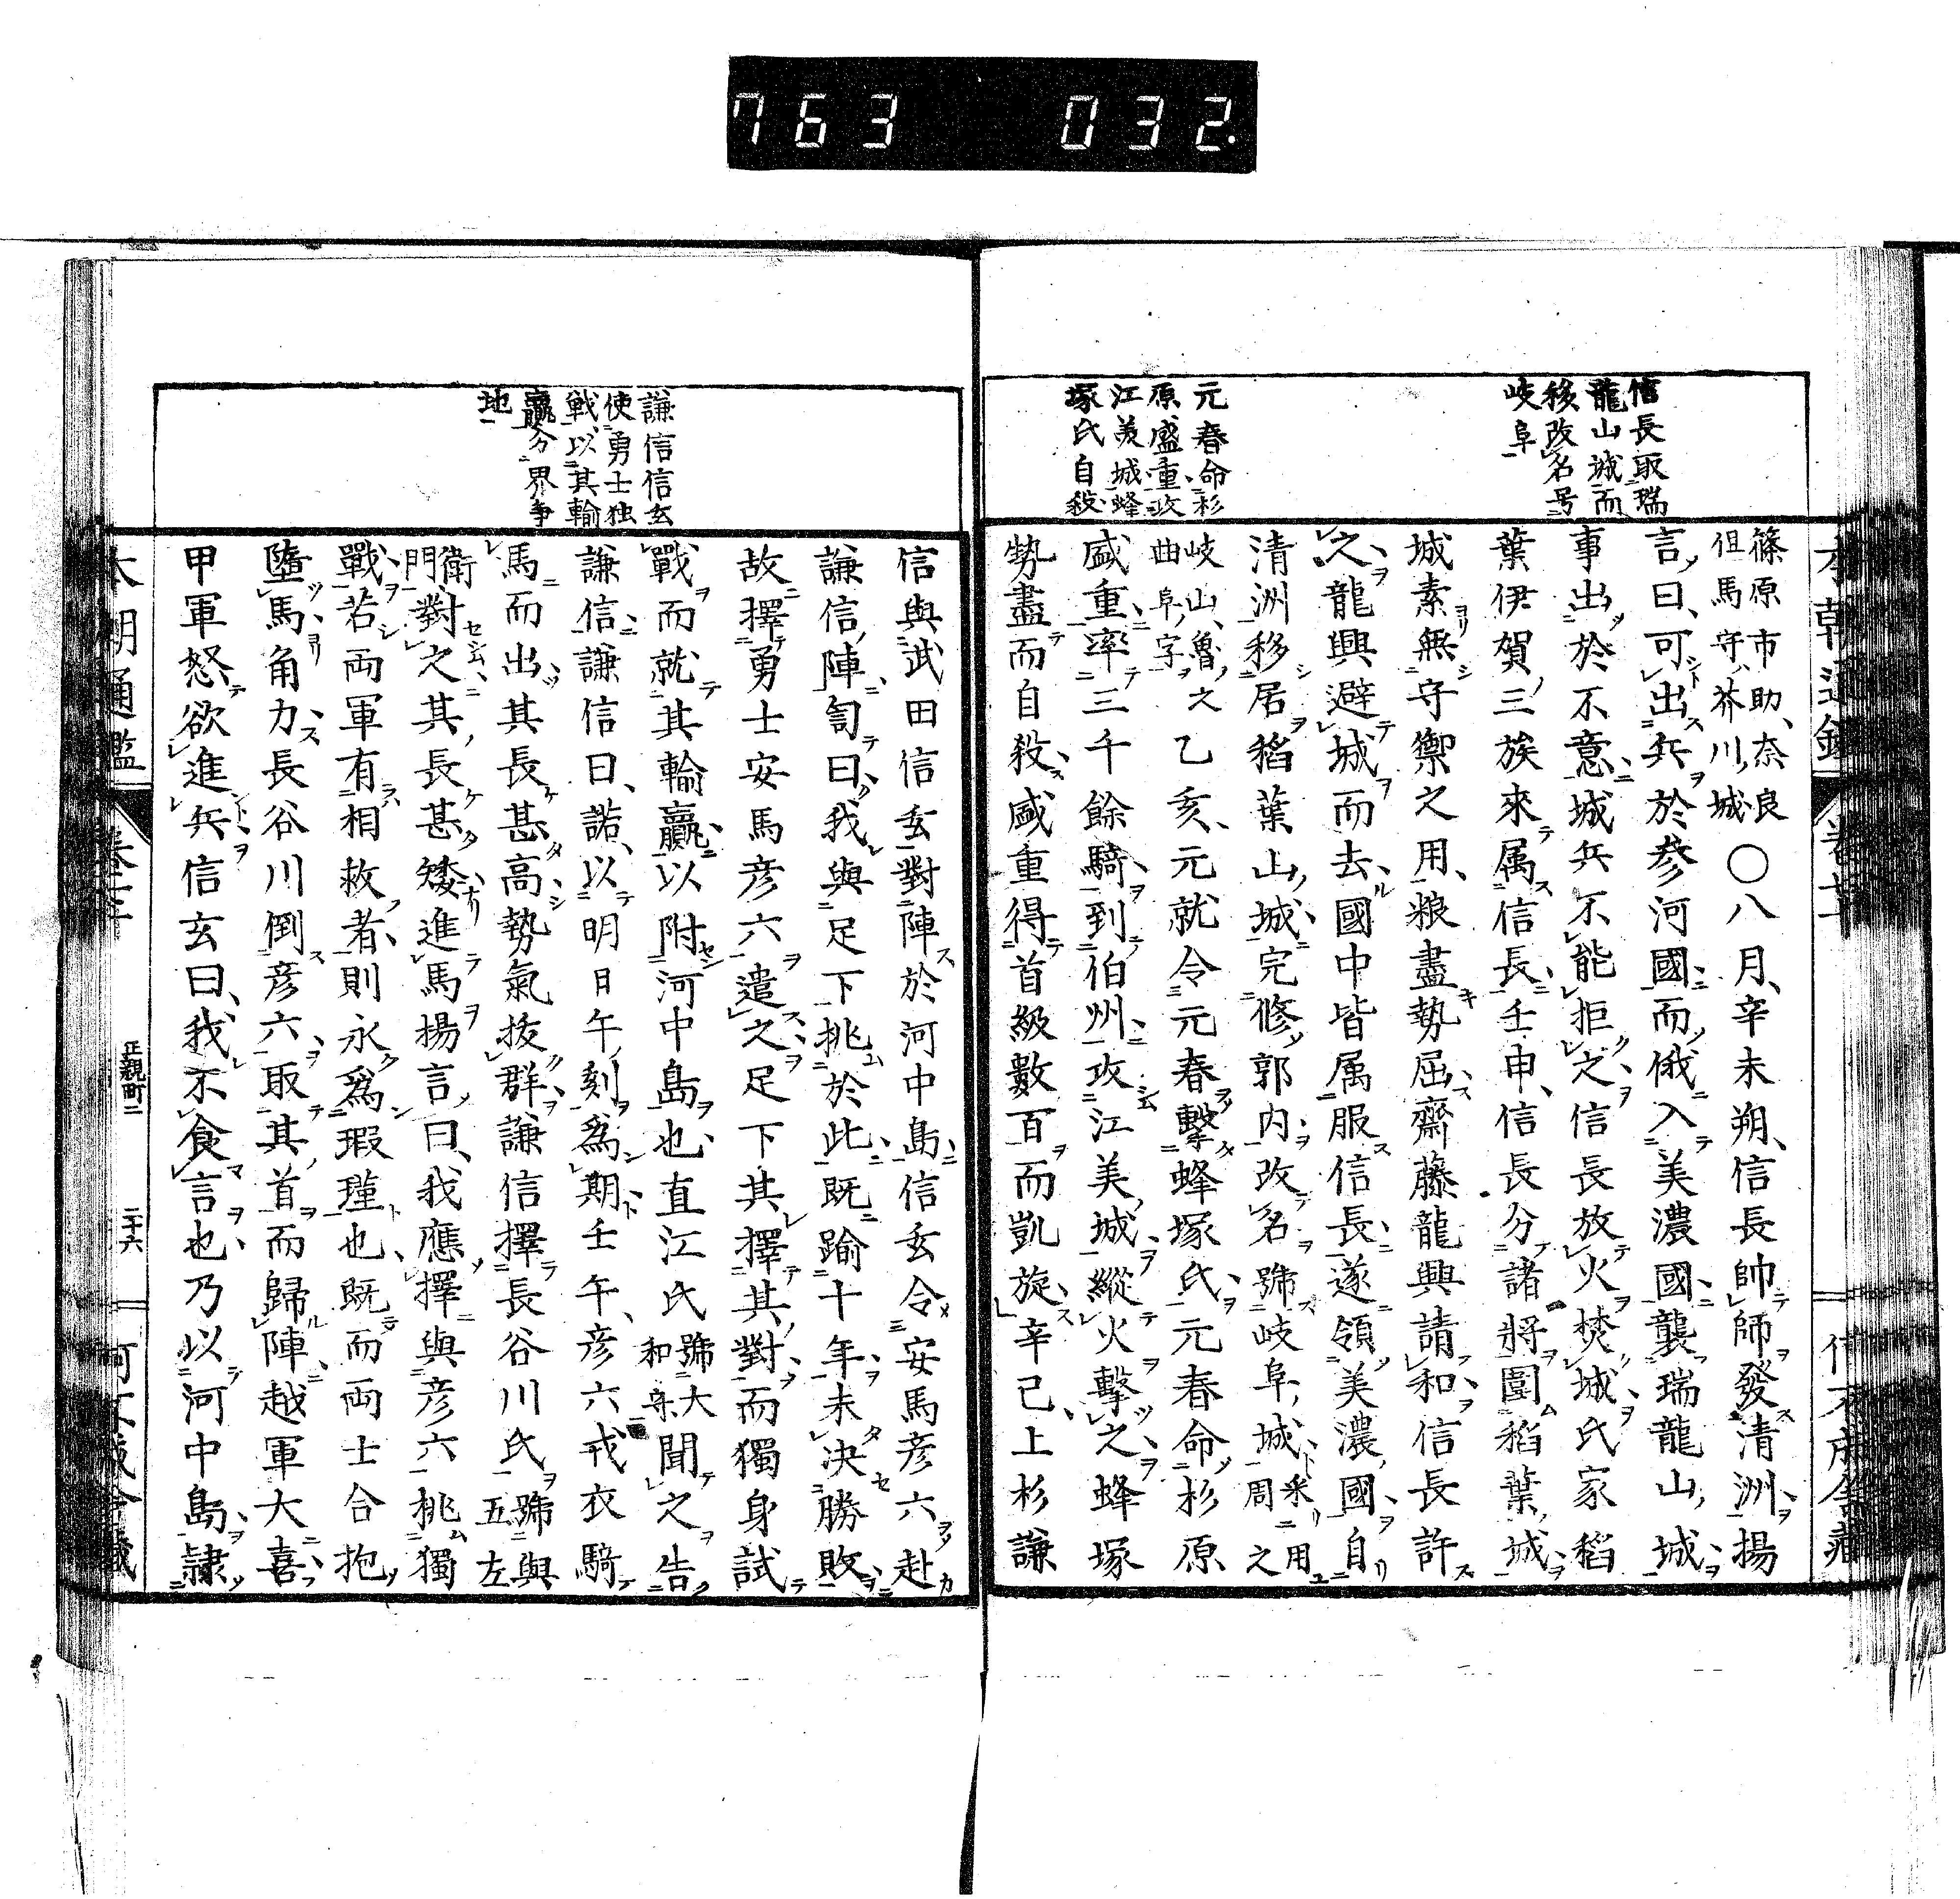 763 032
信長取瑞
龍山城而
移改名号
岐阜
元春命杉
原盛重攻
江美城蜂
塚氏自殺
篠原市助、奈良
但馬守、芥川城
〇八月、辛未朔、信長帥師發清洲揚
言曰、可出兵於參河國而俄入美濃國襲瑞龍山城
事出於不意城兵不能拒之信長放火焚城氏家稻
葉伊賀三族來属信長壬申、信長分諸將圍稻葉城
城素無守禦之用、粮盡勢屈齋藤龍興請和信長許
之龍興避城而去國中皆属服信長遂領美濃國自
清洲移居稻葉山城完修郭内改名號岐阜城
釆用周之
岐山、魯之
曲阜字
乙亥、元就令元春擊蜂塚氏元春命杉原
盛重率三千餘騎到伯州攻江美城縱火擊之蜂塚
勢盡而自殺盛重得首級數百而凱旋辛己、上杉謙
謙信信玄
使勇士独
戦以其輸
贏分界爭
地
信與武田信玄對陣於河中島信玄令安馬彦六赴
謙信陣訇曰、我與足下挑於此既踰十年未决勝敗
故擇勇士安馬彦六遣之足下其擇其對而獨身試
戰而就其輸贏以附河中島也、直江氏
號大
和守
聞之告
謙信謙信曰、諾、以明日午刻爲期壬午、彦六戎衣騎
馬而出其長甚高勢氣拔群謙信擇長谷川氏
號與
五左
衛
門
對之其長甚矮進馬揚言曰、我應擇與彦六挑獨
戰若両軍有相救者則永爲瑕瑾也既而両士合抱
墮馬角力長谷川倒彦六取其首而歸陣越軍大喜
甲軍怒欲進兵信玄曰、我不食言也乃以河中島隷
本朝通鑑
正親町二
二十六